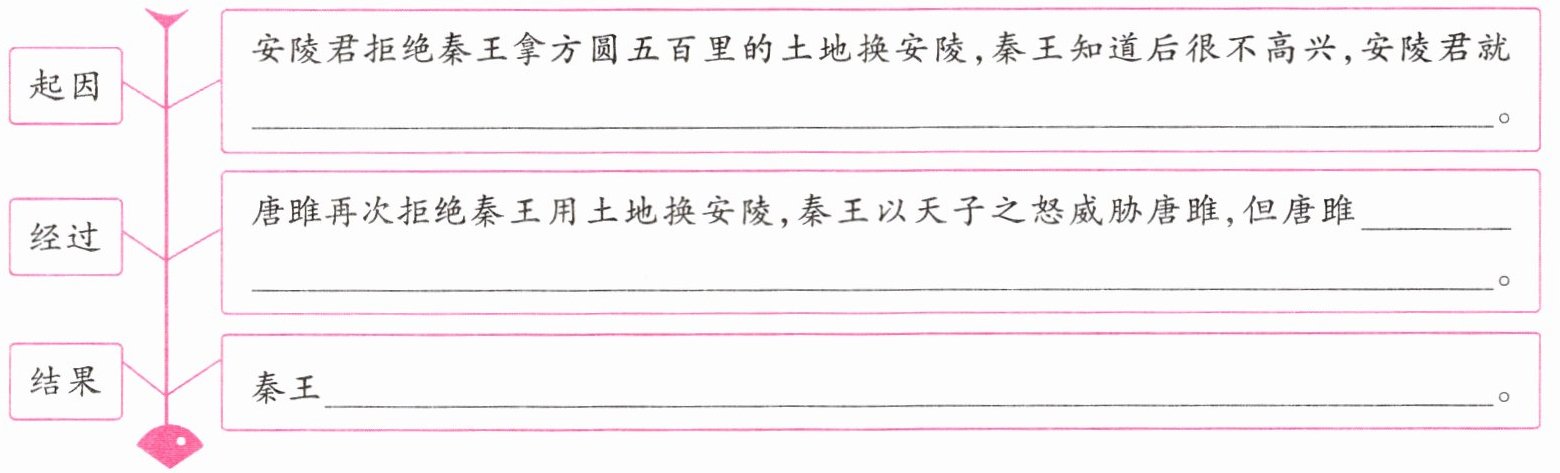 起因
安陵君拒绝秦王拿方圆五百里的土地换安陵,秦王知道后很不高兴,安陵君就
。
经过
唐雎再次拒绝秦王用土地换安陵,秦王以天子之怒威胁唐雎,但唐雎
。
结果
秦王。